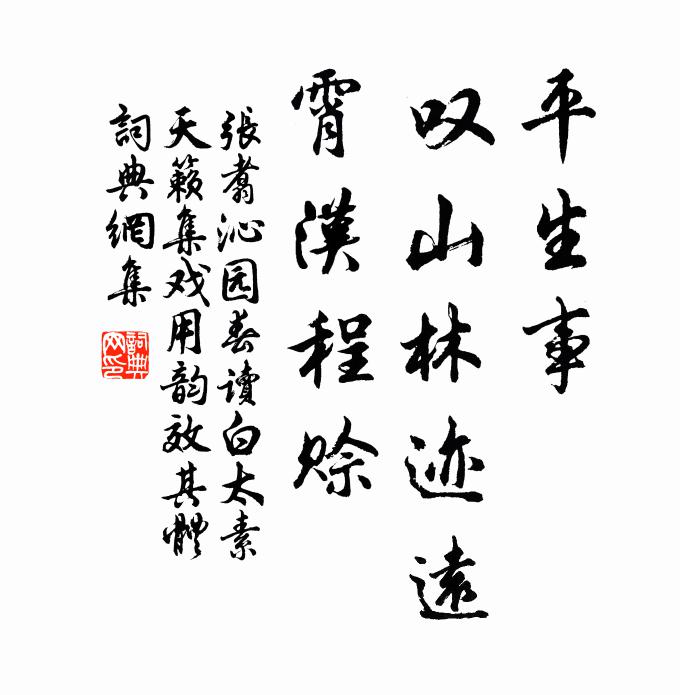 平生事
叹山林迹遠
霄漢程赊
張翥沁园春讀白太素
天籟集戏用韵效其體
詞典網集
詞典
网印